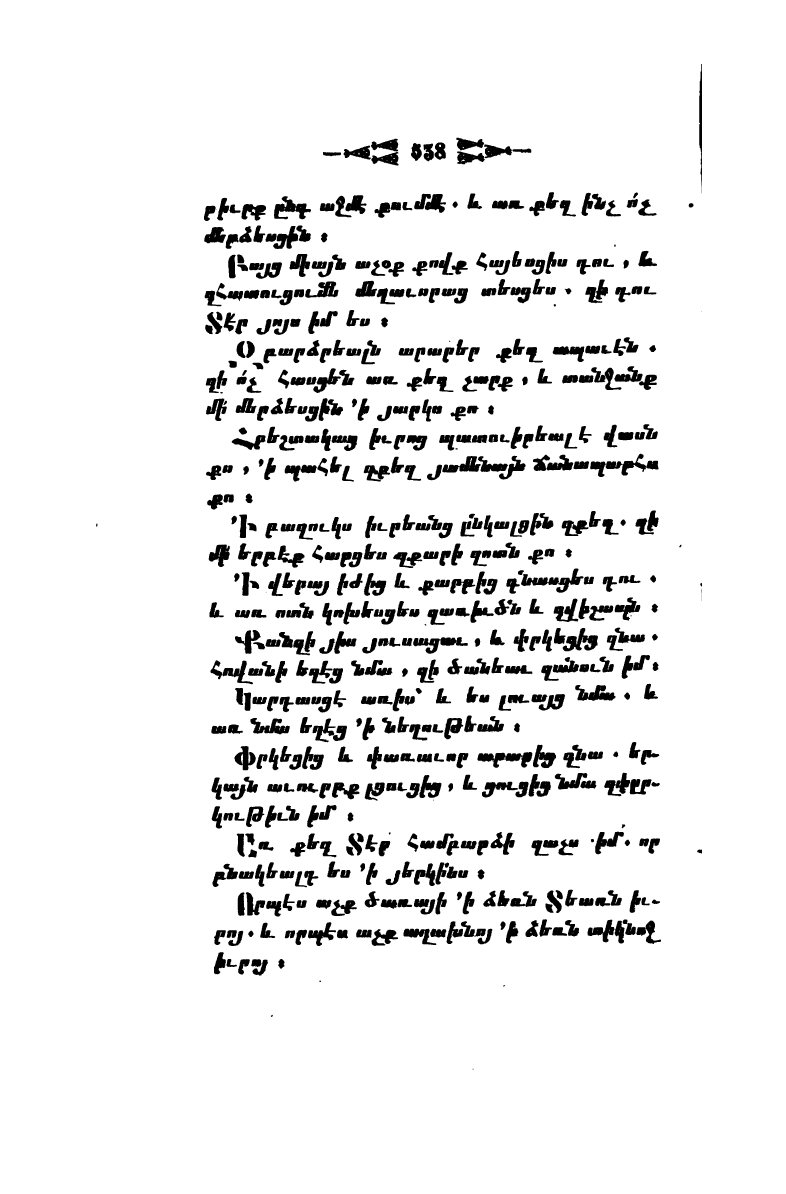 538
րիւրք ընդ աջմէ քումմէ. և առ քեզ ինչ ո՛չ
մերձեսցին ։
Բայց միայն աչօք քովք հայեսցիս դու, և
զհատուցումն մեղաւորաց տեսցես. զի դու
Տէր յոյս իմ ես ։
Օ բարձրեալն արարեր քեզ ապաւէն.
զի ո՛չ հասցեն առ քեզ չարք, և տանջանք
մի մերձեսցին ՚ի յարկս քո ։
Հրեշտակաց իւրոց պատուիրեալ է վասն
քո, ՚ի պահել զքեզ յամենայն ճանապարհս
քո ։
՚Ի բազուկս իւրեանց ընկալցին զքեզ. զի
մի երբէք հարցես զքարի զոտն քո ։
՚Ի վերայ իժից և քարբից գնասցես դու.
և առ ոտն կոխեսցես զառիւծն և զվիշապն ։
Քանզի յիս յուսացաւ, և փրկեցից զնա.
հովանի եղէց նմա, զի ծանեաւ զանուն իմ ։
Կարդասցէ առիս՝ և ես լուայց նմա. և
առ նմա եղէց ՚ի նեղութեան ։
Փրկեցից և փառաւոր արարից զնա. եր-
կայն աւուրբք լցուցից, և ցուցից նմա զփրր-
կութիւն իմ ։
Առ քեզ Տէր համբարձի զաչս իմ. որ
բնակեալդ ես ՚ի յերկինս ։
Որպէս աչք ծառայի ՚ի ձեռն Տեառն իւ-
րոյ. և որպէս աչք աղախնոյ ՚ի ձեռն տիկնոջ
իւրոյ ։